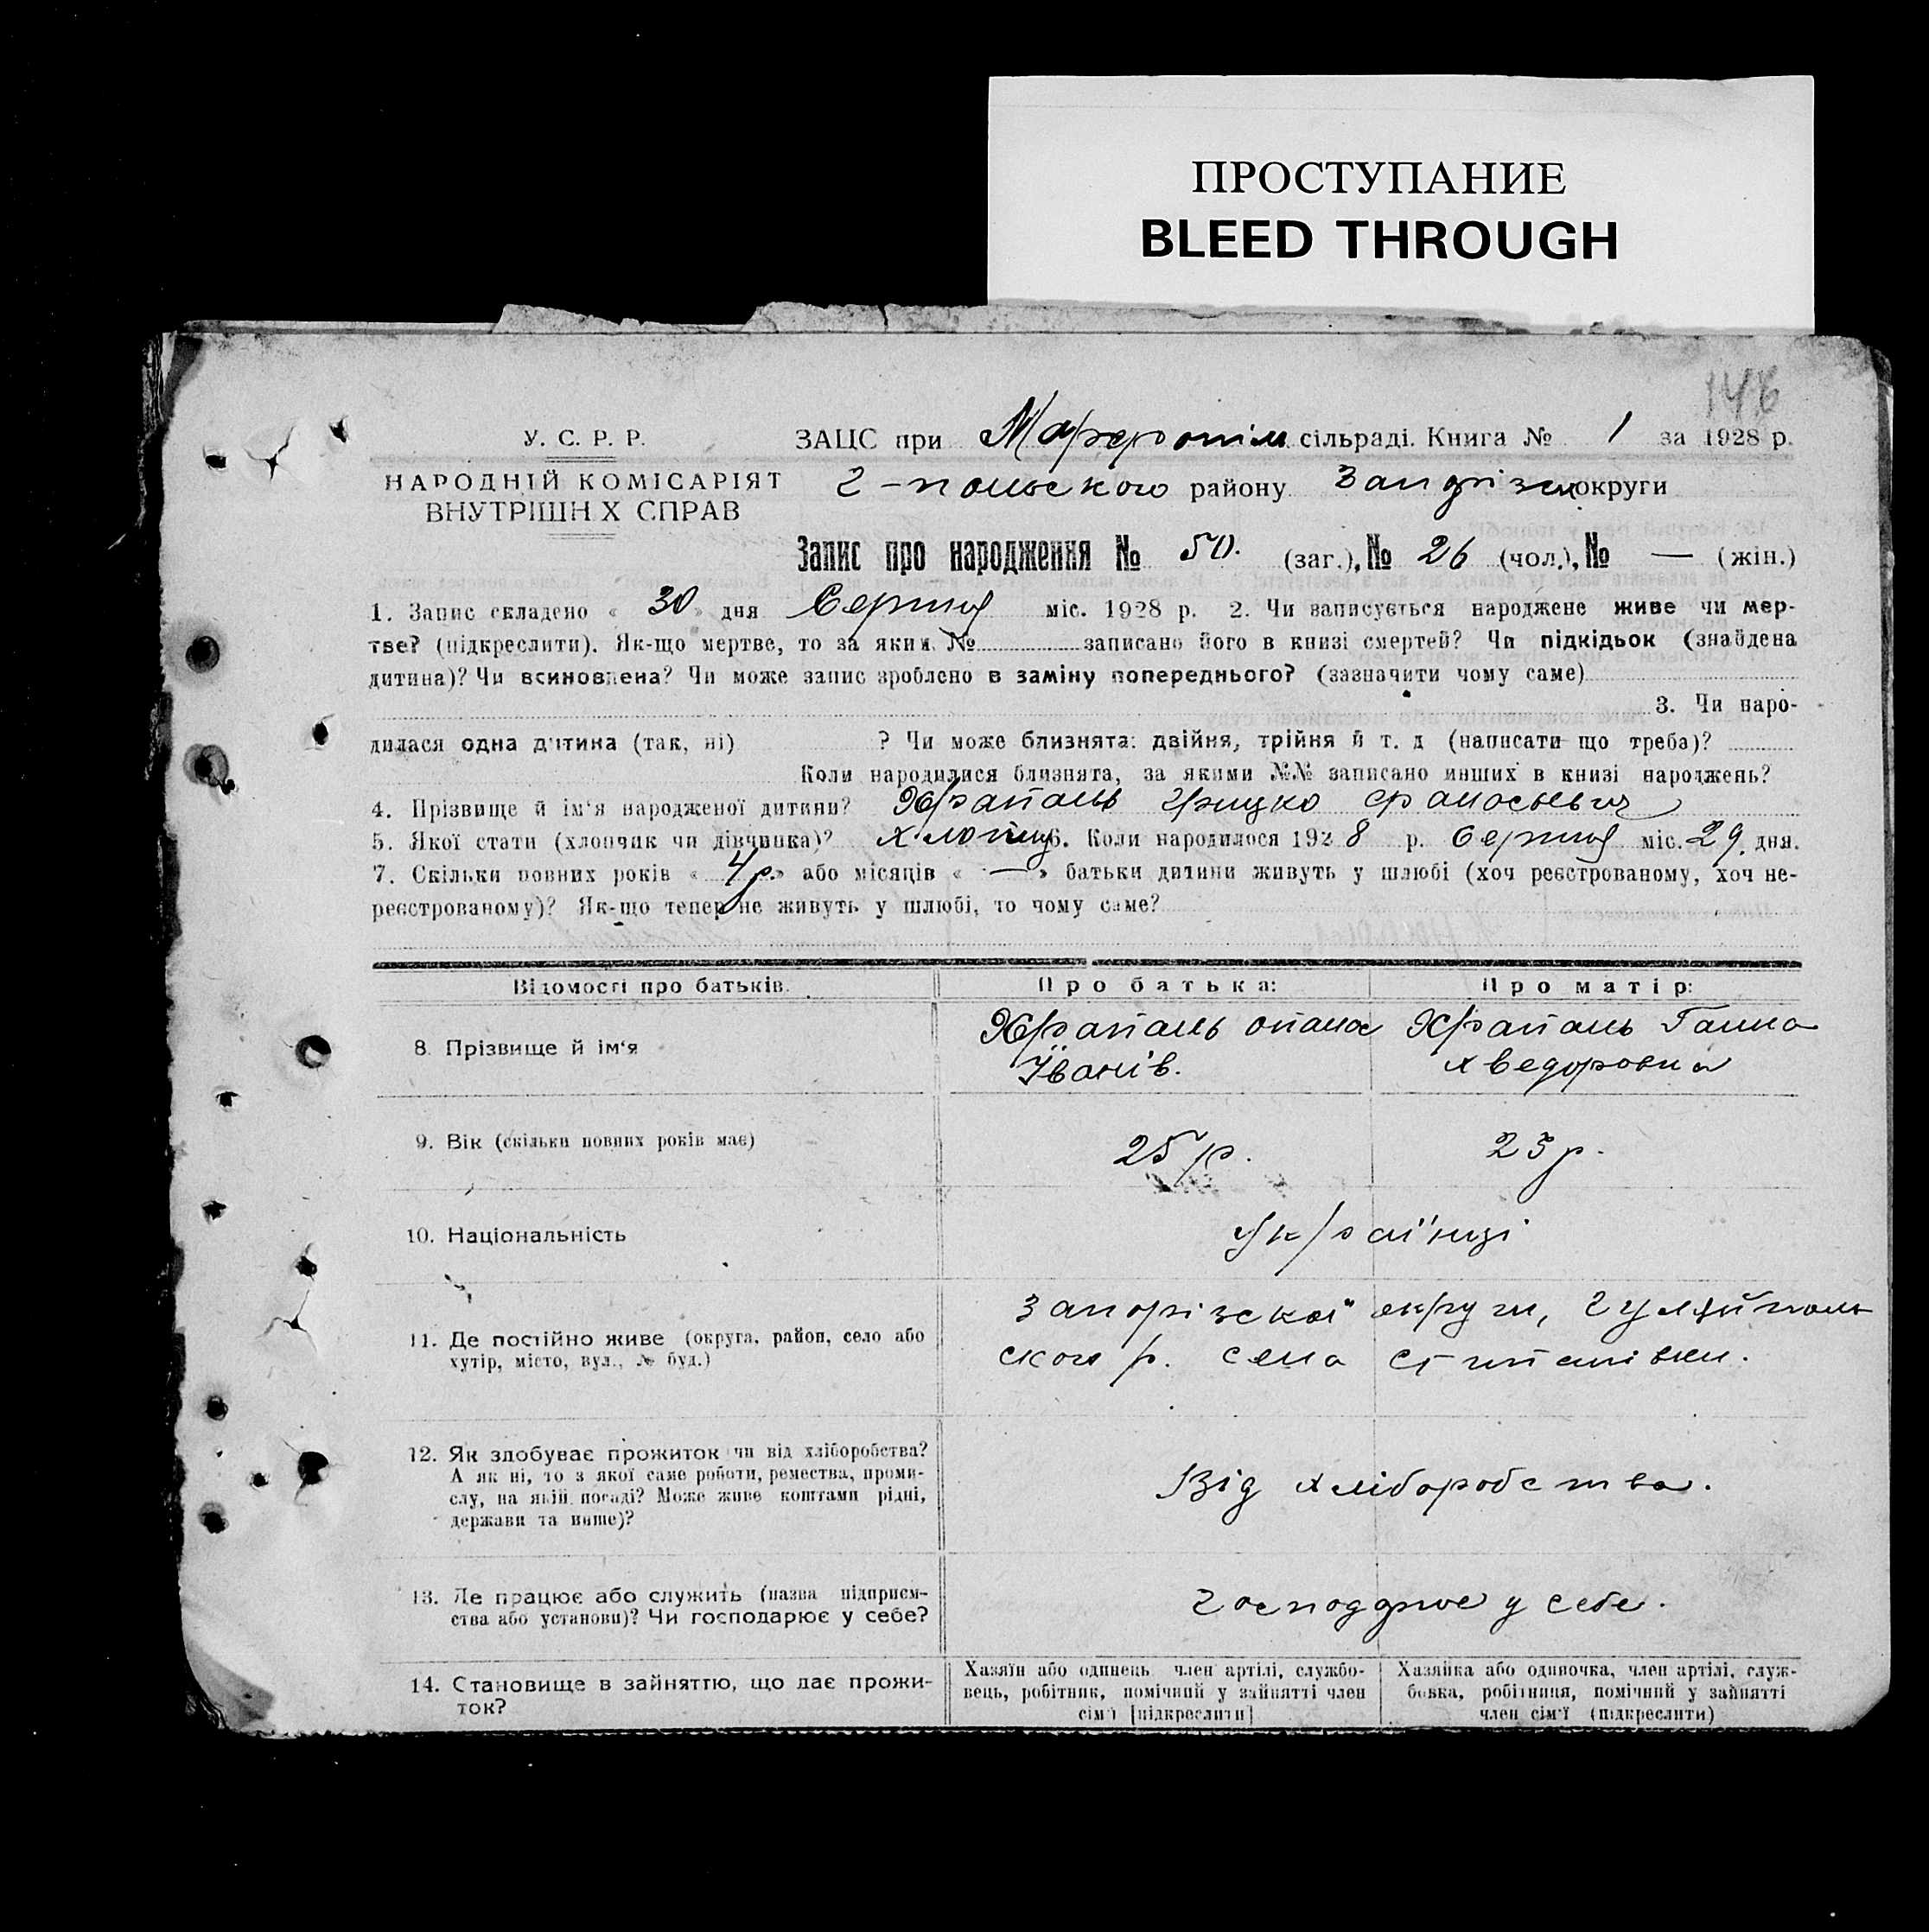 ПРОСТУПАНИЕ
BLEED THROUGH
146
У. С. Р. Р.
НАРОДНІЙ КОМІСАРІЯТ
ВНУТРІШН Х СПРАВ
ЗАЦС при сільраді. Книга № 1 за 1928 р.
Г-польского району округи
Запис про народження № 50. (заг.), № 26 (чол.), № — (жін.)
1. Запис складено « 30 » дня Серпня міс. 1928 р. 2. Чи записується народжене живе чи мер-
тве? (підкреслити). Як-що мертве, то за яким № записано його в книзі смертей? Чи підкідьок (знайдена
дитина)? Чи всиновлена? Чи може запис зроблено в заміну попереднього? (зазначити чому саме)
3. Чи наро-
дилася одна дитина (так, ні) ? Чи може близнята: двійня, трійня й т. д (написати що треба)?
Коли народилися близнята, за якими №№ записано инших в книзі народжень?
4. Прізвище й ім'я народженої дитини? Храпаль Грицко
5. Якої стати (хлопчик чи дівчинка)? 6. Коли народилося 1928 р. Серпня міс. 29. дня.
7. Скільки повних років « 4 р. » або місяців « — » батьки дитини живуть у шлюбі (хоч реєстрованому, хоч не-
реєстрованому)? Як-що тепер не живуть у шлюбі, то чому саме?
Відомості про батьків. Про батька: Про матір:
8. Прізвище й ім'я
Храпаль опанас
Іванів.
Храпаль Ганна
хведоровна
9. Вік (скільки повних років має) 25 р. 23 р.
10. Національність Українці
11. Де постійно живе (округа, район, село або
хутір, місто, вул., № буд.)
Запорізскої округи, Гуляйполь
ского р. села
12. Як здобуває прожиток чи від хліборобства?
А як ні, то з якої саме роботи, ремества, проми-
слу, на якій посаді? Може живе коштами рідні,
держави та инше)?
Від хліборобства.
13. Де працює або служить (назва підприєм-
ства або установи)? Чи господарює у себе?
Господарює у себе.
14. Становище в зайняттю, що дає прожи-
ток?
Хазяїн або одинець член артілі, службо-
вець, робітник, помічний у зайнятті член
сім'ї [підкреслити]
Хазяйка або одиночка, член артілі, служ-
бовка, робітниця, помічний у зайнятті
член сім'ї (підкреслити)